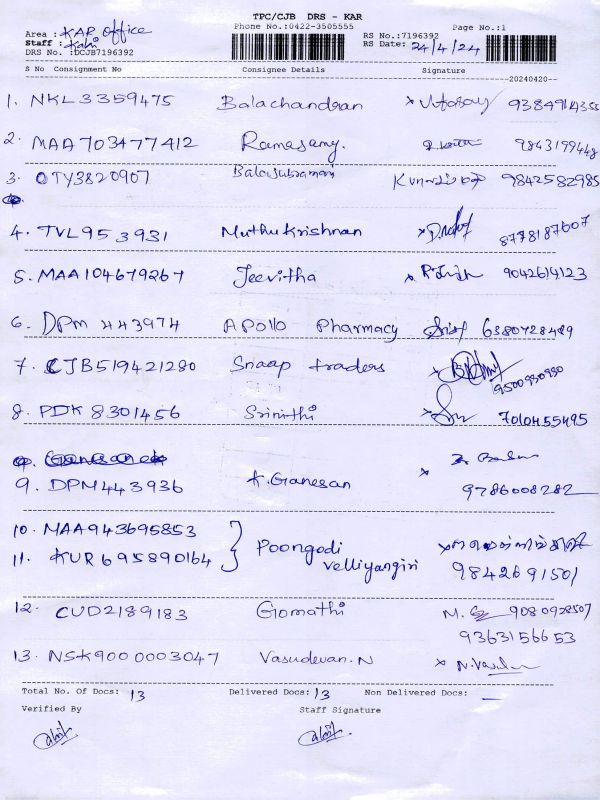 TPC/CJB DRS - KAR
Phone No.:0422-3505555
Page No.:1
Area : KAR office
RS No.:7196392
Staff : Kani
RS Date: 24/4/24
DRS No. :DCJB7196392
S No Consignment No Consignee Details Signature
20240420
1. NKL3359475 Balachandran 9384914355
2. MAA703477412 Ramasamy. 9843199448
3. OTY3820907 Balasubramani 9842582985
4. TVL953931 Muthukrishnan 8778187607
5. MAA104679267 Jeevitha 9042614123
6. DPM 443974 Apollo Pharmacy 6380728489
7. CJB519421280 Snaap traders 9500930930
8. PDK 8301456 Srinithi 7010455495
9. DPM443936 K.Ganesan 9786008282
10. MAA943695853
11. KUR695890164 Poongodi Velliyangiri 9842691501
12. CUD2189183 Gomathi 9080928507
9363156653
13. NSK9000003047 Vasudevan.N
Total No. Of Docs: 13 Delivered Docs: 13 Non Delivered Docs: —
Verified By Staff Signature